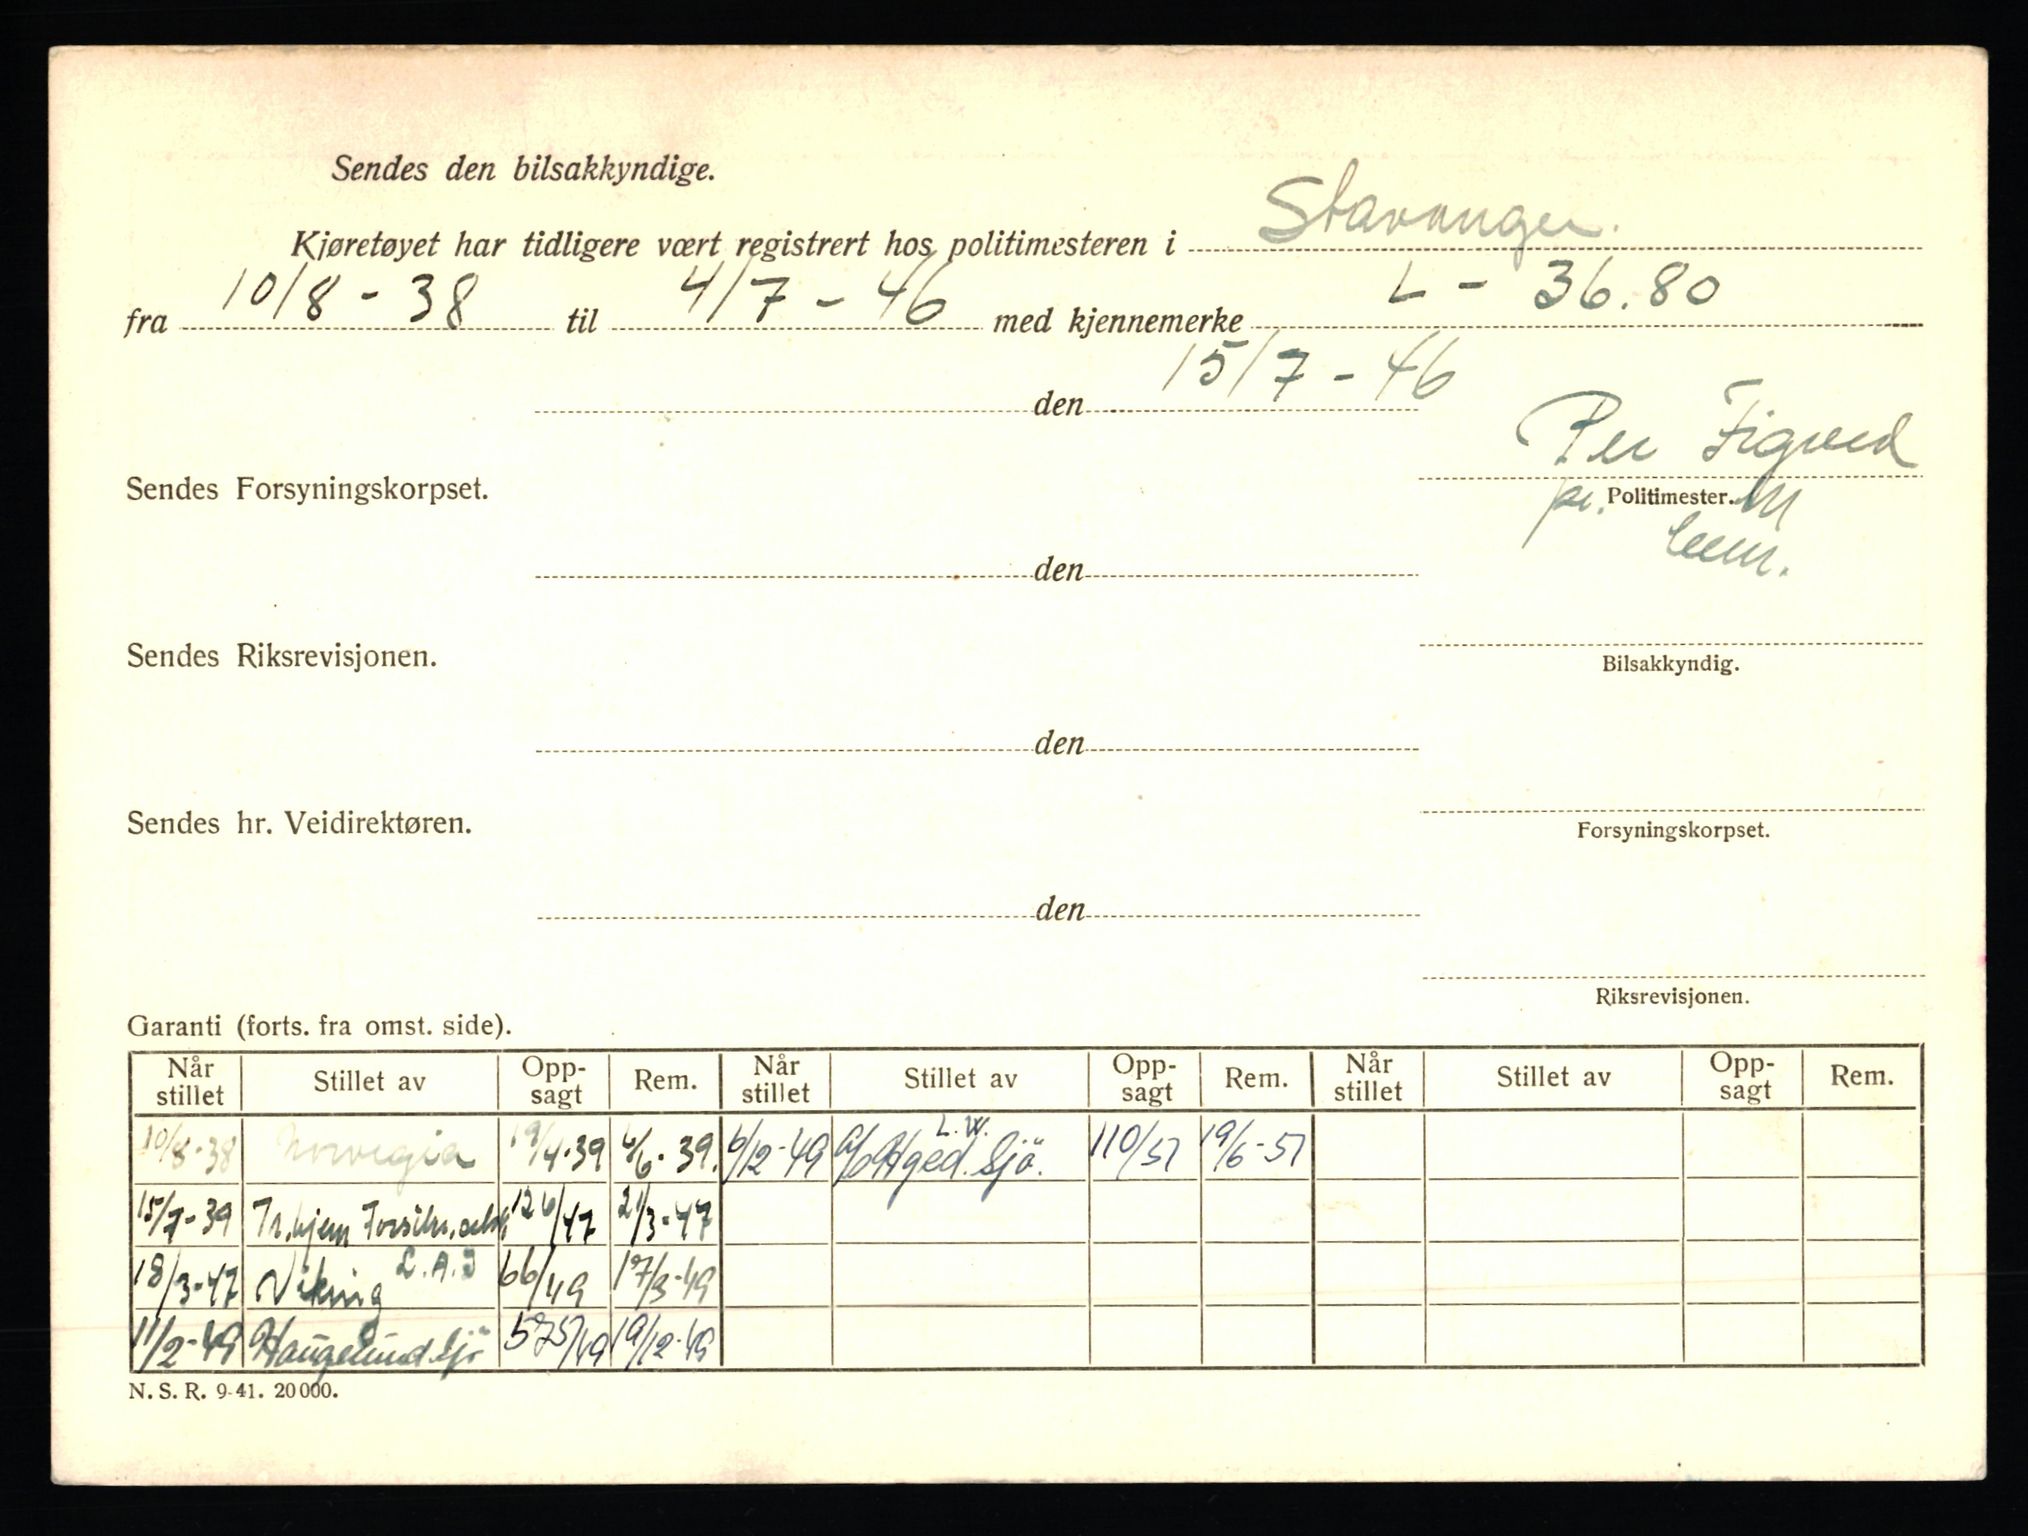 Sendes den bilsakkyndige.
Kjøretøyet har tidligere vært registrert hos politimesteren i Stavanger.
fra 10/8 - 38 til 4/7 - 46 med kjennemerke L - 36.80
den 15/7 - 46
Sendes Forsyningskorpset.
Per
Politimester.
den
Sendes Riksrevisjonen.
Bilsakkyndig.
den
Sendes hr. Veidirektøren.
Forsyningskorpset.
den
Riksrevisjonen.
Garanti (forts. fra omst. side).
Når stillet Stillet av Opp-sagt Rem. Når stillet Stillet av Opp-sagt Rem. Når stillet Stillet av Opp-sagt Rem.
10/8-38 Norvegia 19/4-39 6/6-39. 6/12-49 L.W. Sjö. 110/51 19/6-51
15/7-39 Tr.hjem 126/47 21/3-47
18/3-47 Viking 66/49 17/3-49
11/2-49 Haugesund Sjö 575/49 19/12-49
N. S. R. 9-41. 20 000.